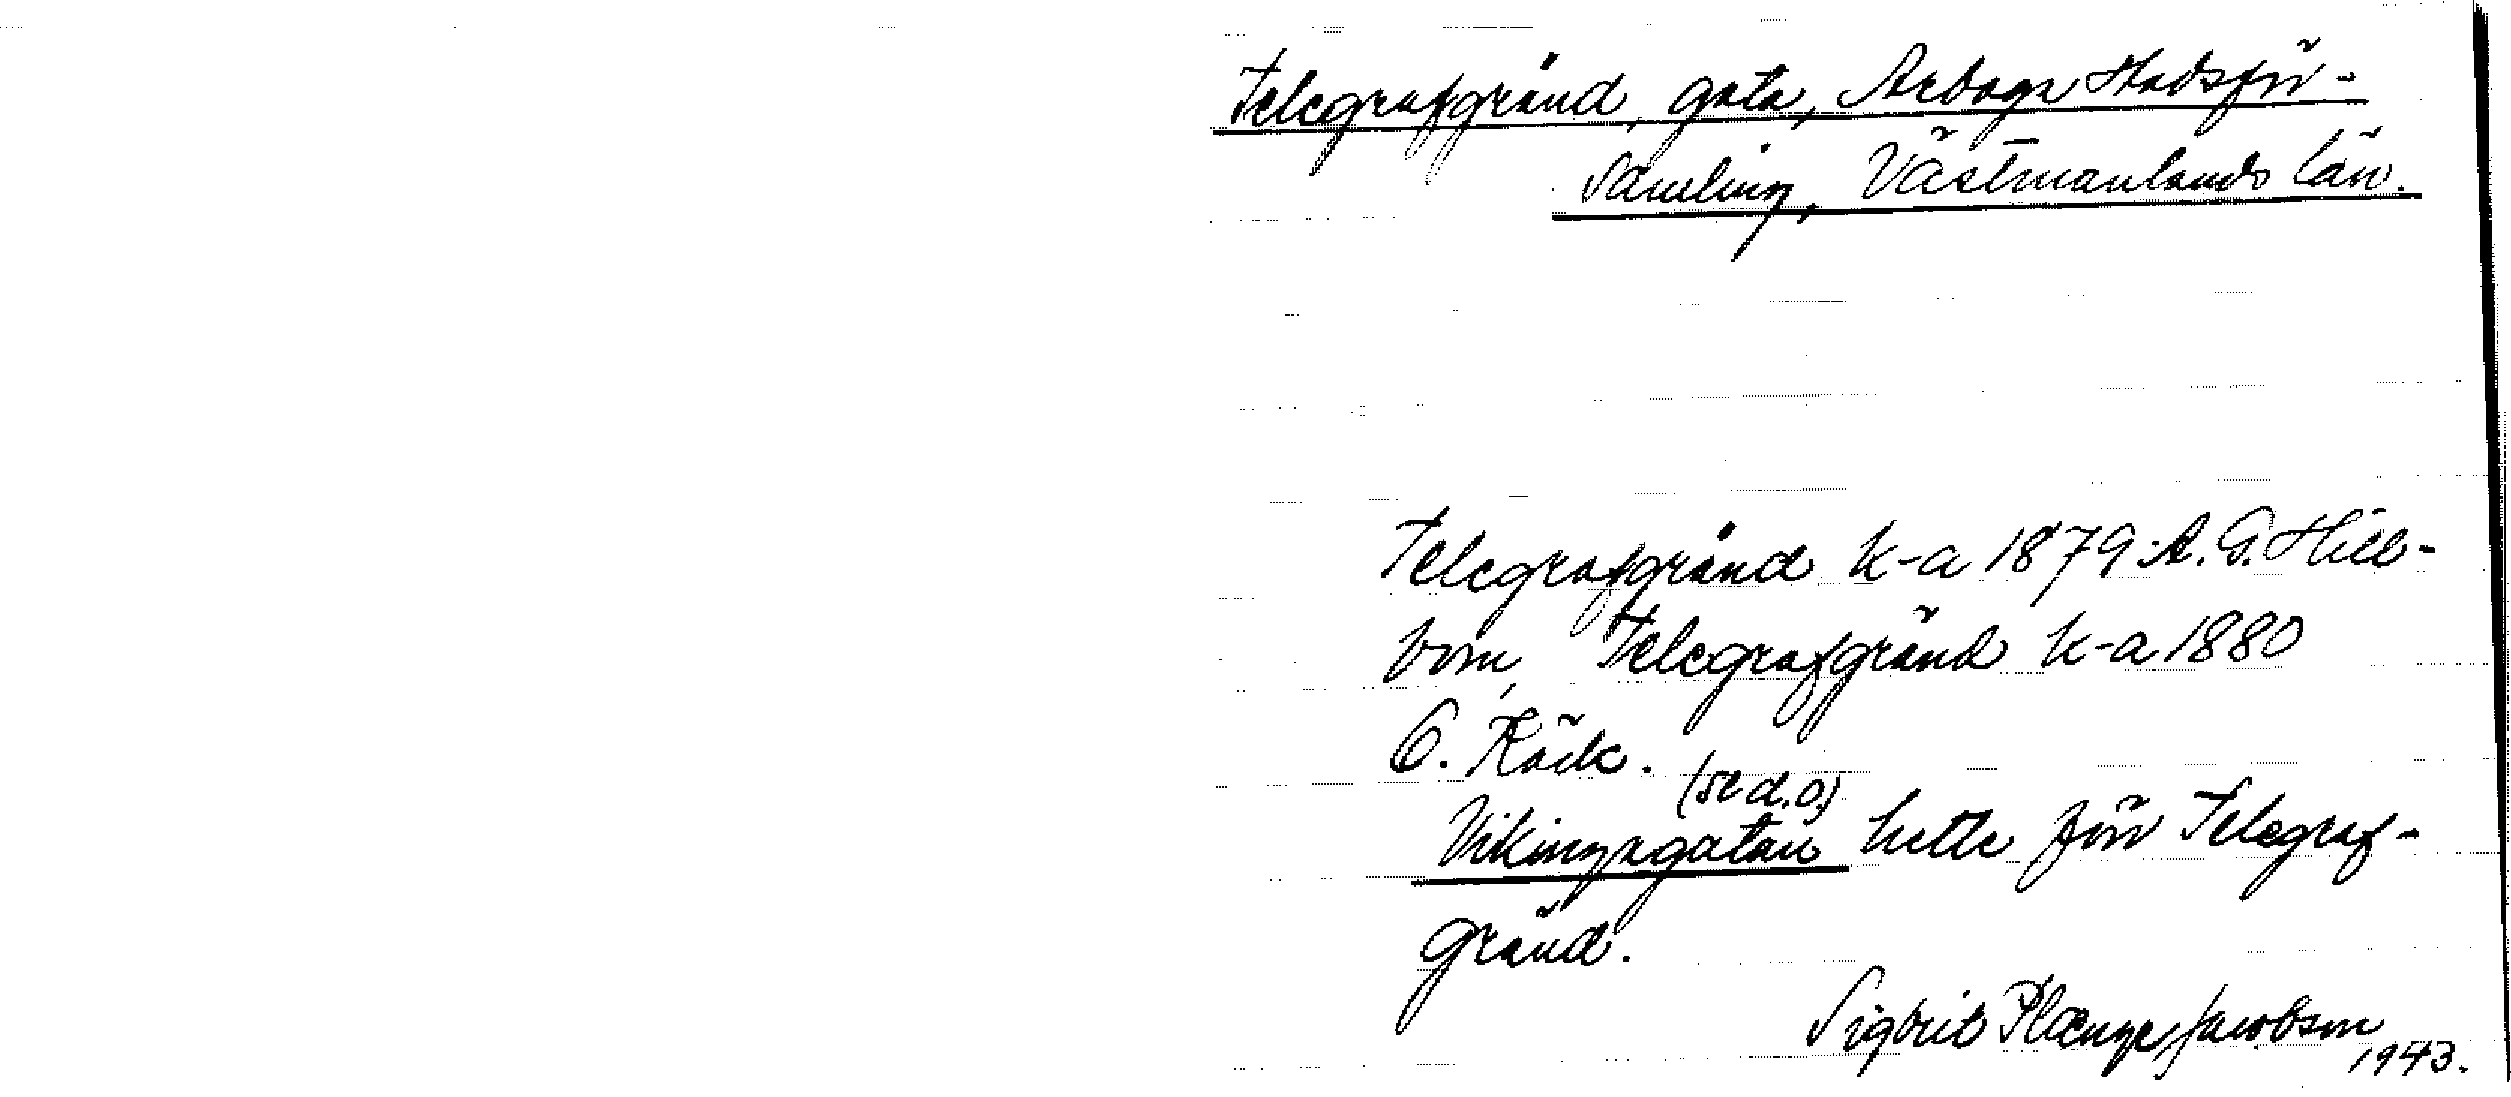 Telegrafgränd, gata, Arboga Stadsför-
samling, Västmanlands län.
Telegrafgränd k-a 1879 A. G. Hill-
bom, Telegrafgränd k-a 1880
C. Köck.
(se d.o)
Vikingagatan hette förr Telegraf-
gränd.
Sigbrit Plænge Jacobson
1943.